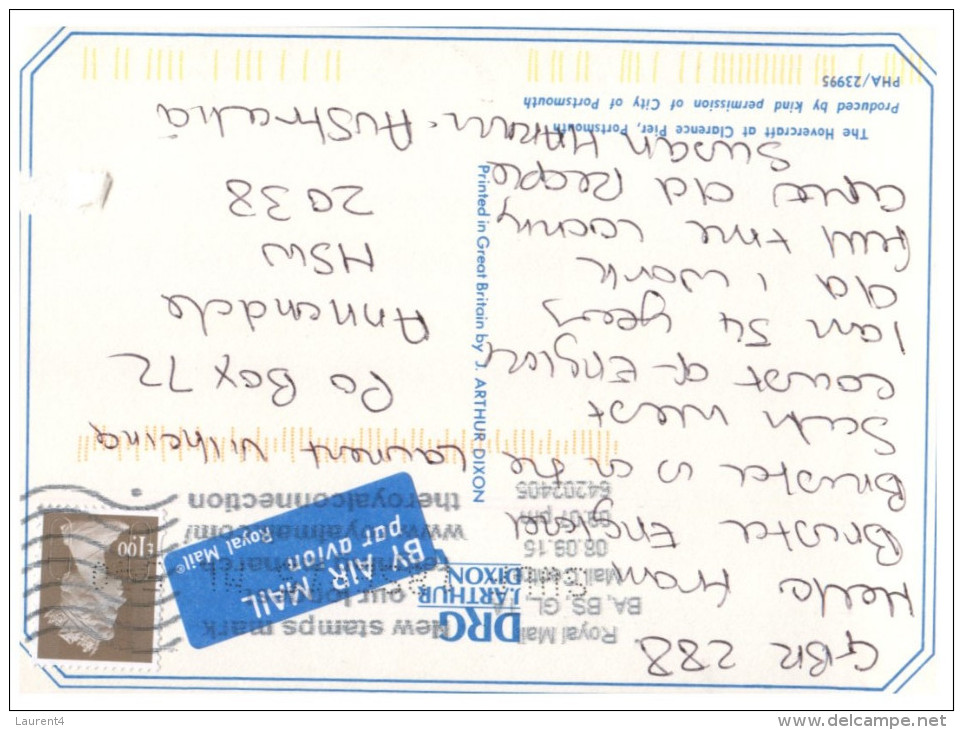 GBR 288
Hello from
Bristol England
Bristol is on the
South West
coast of England
I am 54 years
old I work
full time
old people
Susan
The Hovercraft at Clarence Pier, Portsmouth
Produced by kind permission of City of Portsmouth
PHA/23995
Printed in Great Britain by J. ARTHUR DIXON
DRG
J. ARTHUR
DIXON
Royal Mail
BA, BS, GL,
Mail Centre
08.09.15
64202405
New stamps mark
our longest
reigning monarch
www.royalmail.com/
theroyalconnection
BY AIR MAIL
par avion
Royal Mail®
£1.00
Laurent
PO Box 72
Annandale
NSW
2038
Australia
Laurent4
www.delcampe.net